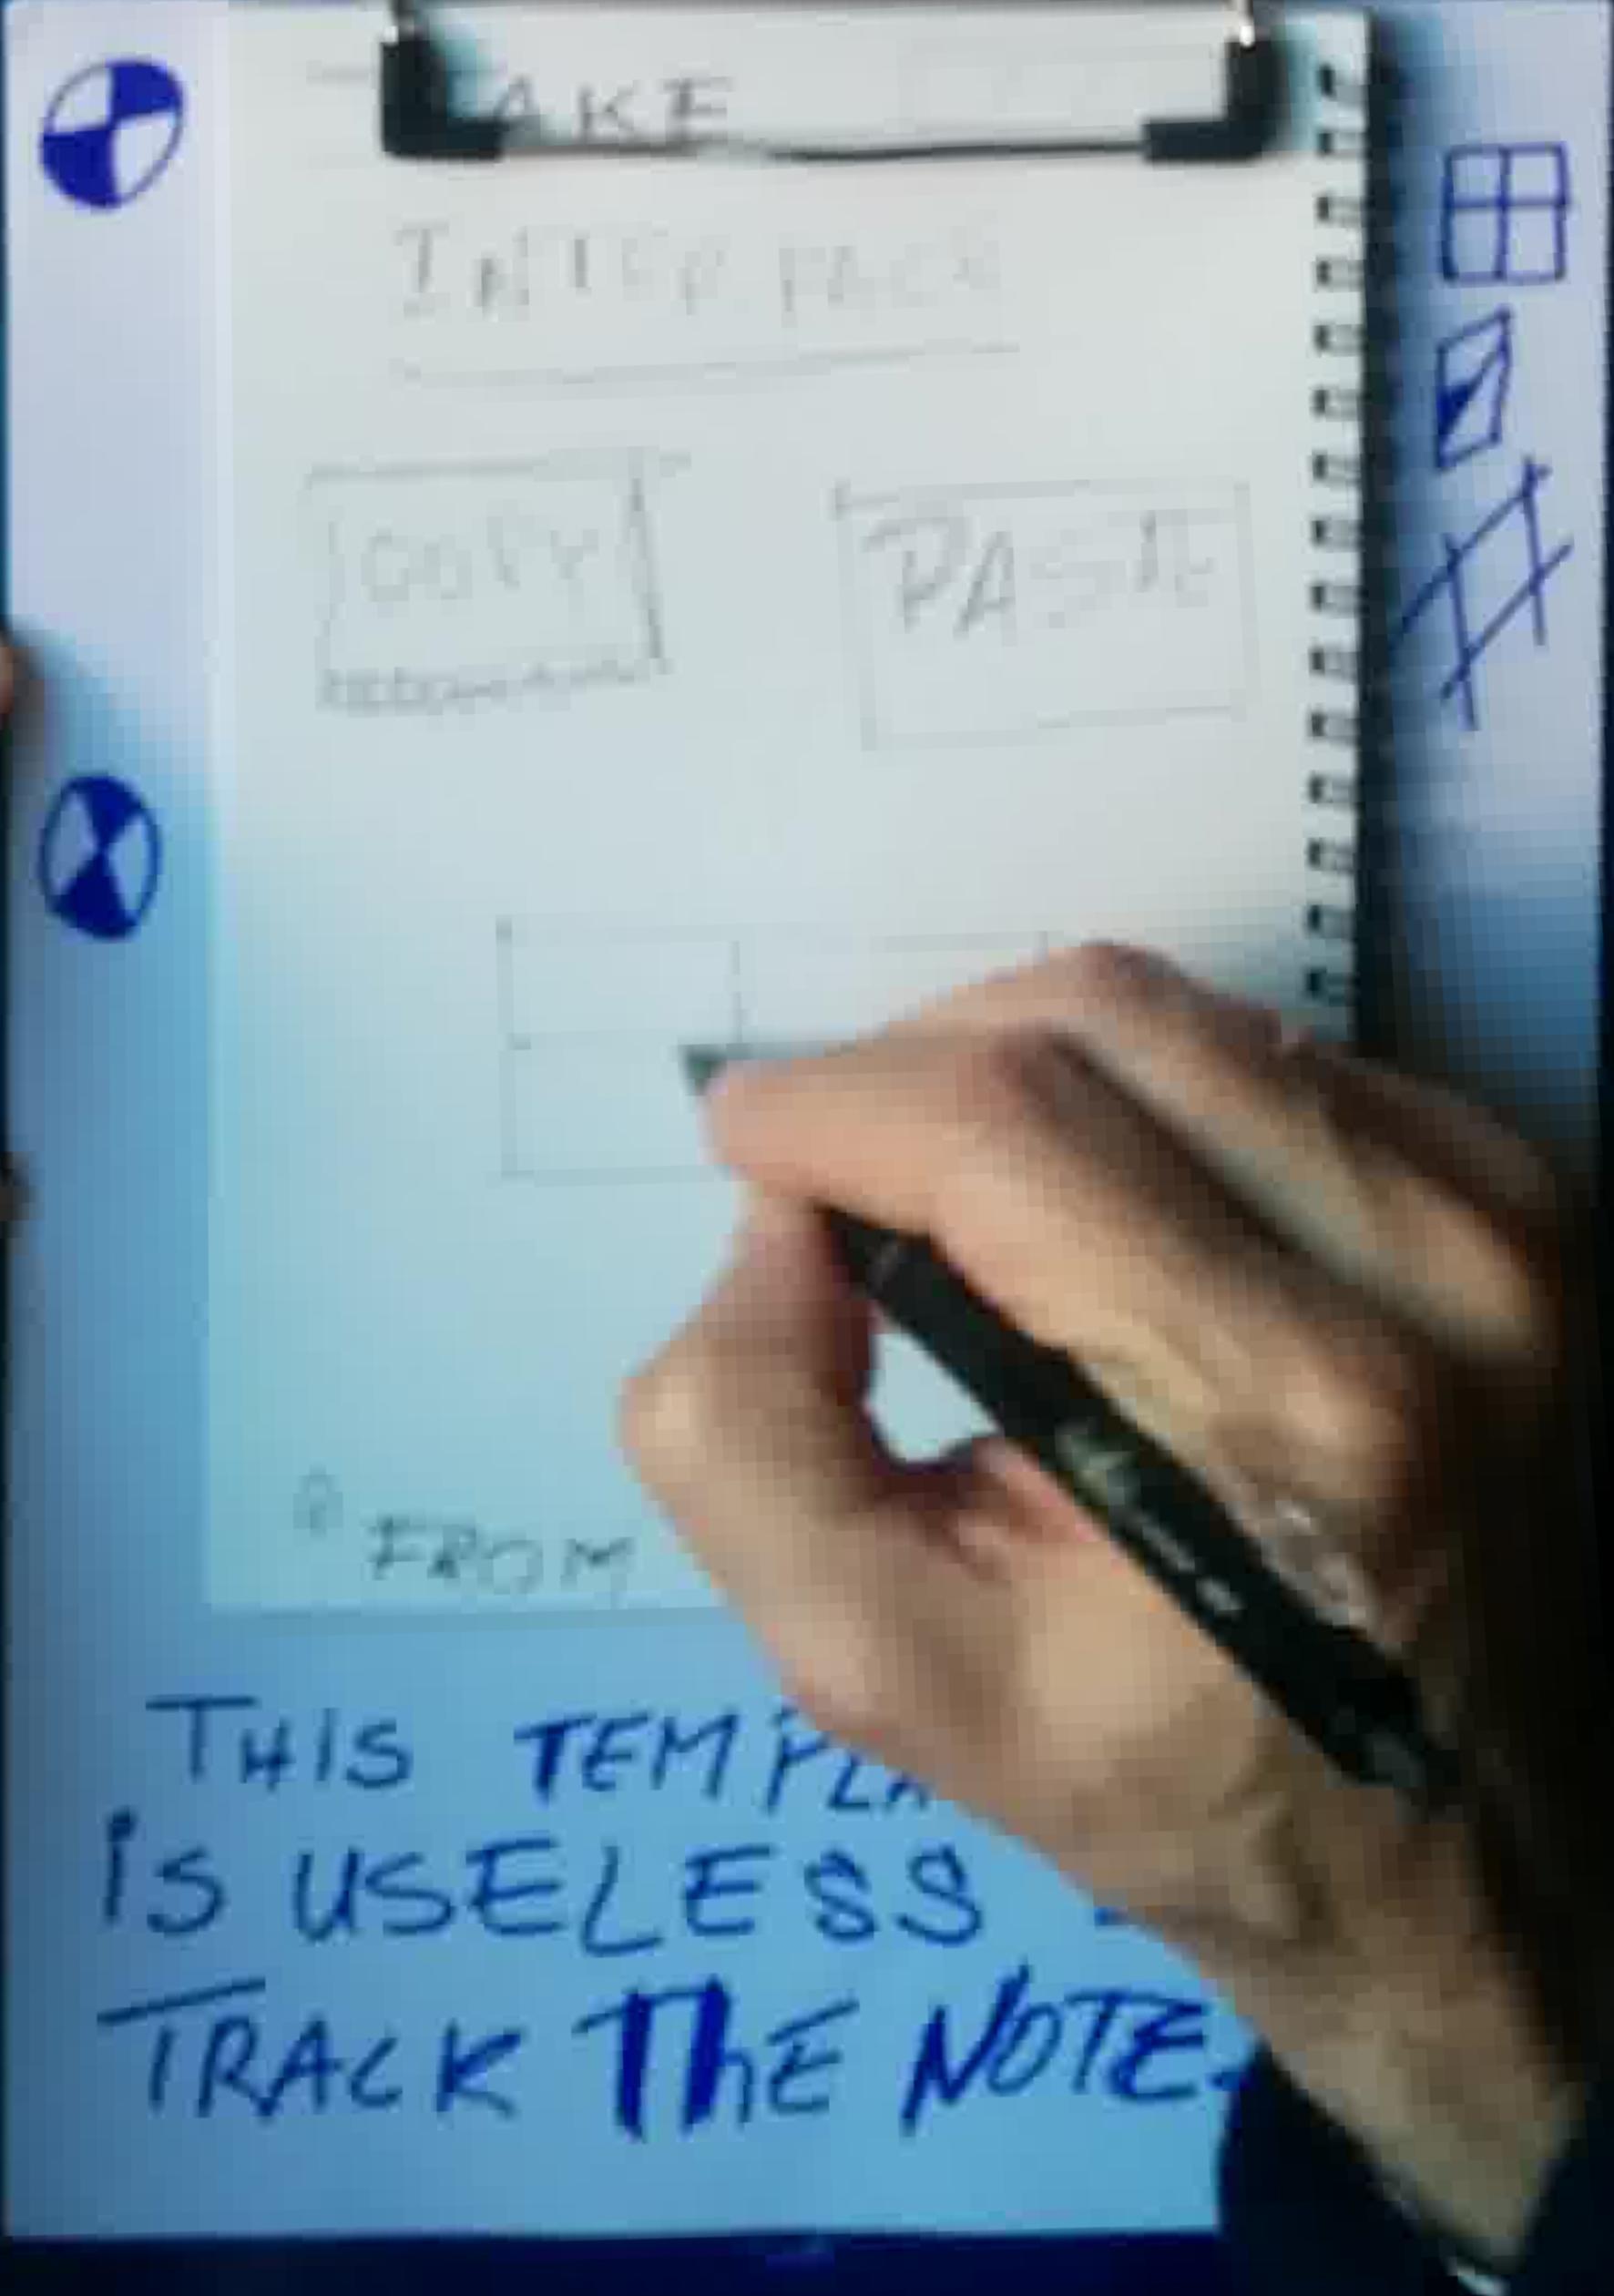 AKE
INTERFACE
COPY PASTE
FROM
THIS TEMPLA
IS USELESS
TRACK THE NOTE.